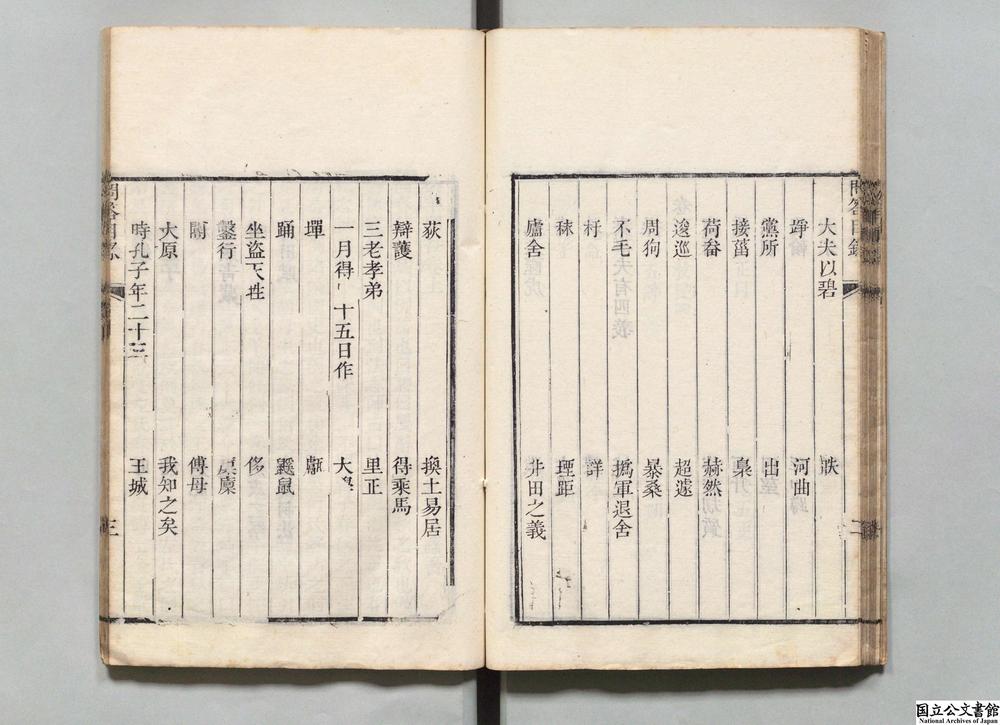 問答目錄
大夫以碧 昳
踭 河曲
黨所 出
接菑 梟
荷畚 赫然
逡巡 超遽
周狗 暴桑
不毛 撝軍退舍
杅 詳
秣 堙距
廬舍 井田之義
二
荻 換土易居
辯護 得乘馬
三老孝弟 里正
一月得 十五日作 大
墠 甗
踊 鼷鼠
坐盜天牲 侈
鑿行 麋
閽 傅母
大原 我知之矣
時孔子年二十三 王城
三
国立公文書館
National Archives of Japan